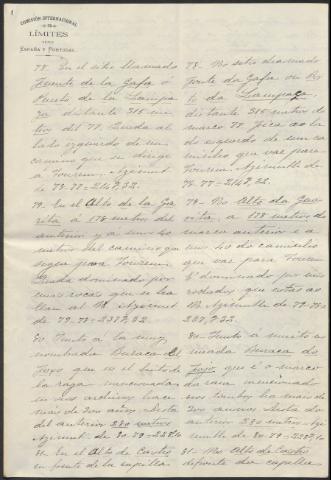 COMISIÓN INTERNACIONAL
DE
LÍMITES
ENTRE
ESPAÑA Y PORTUGAL
78. En el sitio llamado
Fuente de la Gafa ó
Puerto de la
distante 315 me-
tros del 77. Queda al
lado izquierdo de un
camino que se dirige
á Tourem. Azimut
de 78-77=214º,32.
79. En el Alto de la Ga-
rita á 178 metros del
anterior y á unos 40
metros del camino que
sigue para Tourem.
Queda dominado por
unas rocas que se ha-
llan al N. Azimut
de 79-78=238º,32.
80. Junto á la muy
nombrada Buraca del
Foxo que es el hito de
la raya mencionada
en los archivos hace
más de 300 años. Dista
del anterior 280 metros.
Azimut de 80-79=
81. En el Alto de Castro
en frente de la capilla
78. No sitio chamado
Fonte da Gafa ou
da Lampaça,
distante 315 metros do
marco 77. Fica ao la-
do esquerdo de um ca-
minho que vae para
Tourem. Azimuth de
78-77=214º,32.
79. No Alto da Gua-
rita, a 178 metros do
marco anterior e a
uns 40 do caminho
que vae para Tourem.
É dominado por uns
rochedos que estão ao
N. Azimuth de 79-78=
238º,32.
80. Junto á muito no-
meada Buraca do
Foxo que é o marco
da raia mencionado
nos tombos ha mais de
300 annos. Dista do
anterior 280 metros. Azi-
muth de 80-79=
81. No Alto do Castro
defronte da capella